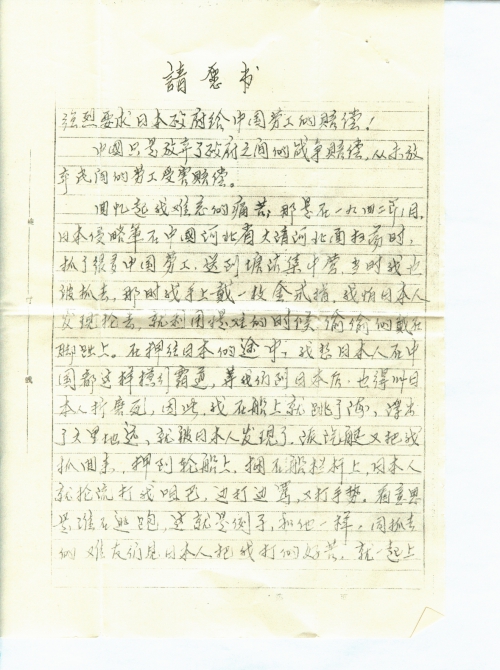 請愿书
强烈要求日本政府给中国劳工的赔偿！
中國只是放弃了政府之间的战争赔偿，从未放
弃民间的劳工受害赔偿。
回忆起我难忘的痛苦，那是在一九四二年1月，
日本侵略军在中國河北省大清河北面扫荡时，
抓了很多中国劳工，送到塘沽集中营，当时我也
被抓去，那时我手上戴一枚金戒指，我怕日本人
发现抢去，就利用慢走的时候，偷偷的戴在
脚趾上。在押往日本的途中，我想日本人在中
国都这样横行霸道，等我们到日本后，也得叫日
本人折磨死，因此，我在船上就跳了海，漂出
了里地远，就被日本人发现了，派汽艇又把我
抓回来，押到轮船上，捆在船栏杆上，日本人
就轮流打我咀巴，边打边骂，又打手势，意思
是谁在逃跑，这就是例子，和他一样，同抓去
的难友们见日本人把我打的好苦，就一起上